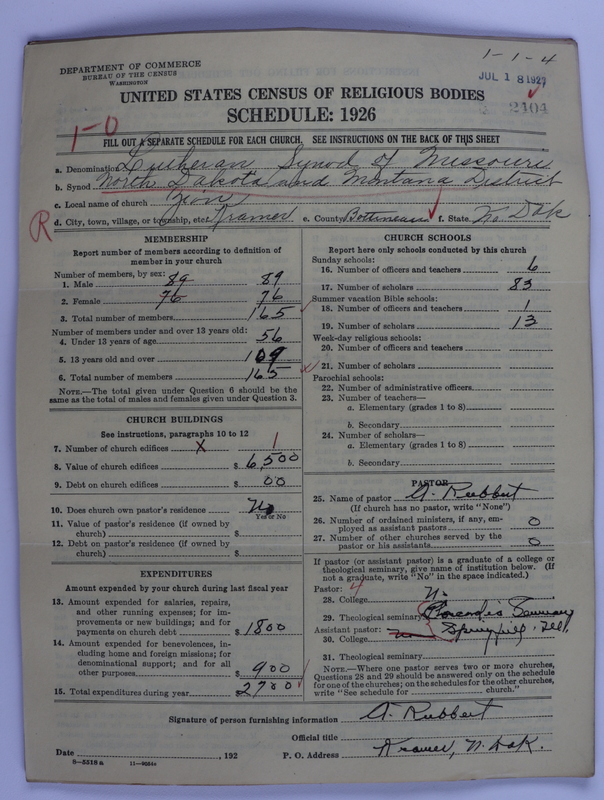 1-1-4
DEPARTMENT OF COMMERCE
BUREAU OF THE CENSUS
WASHINGTON
JUL 18 1927
UNITED STATES CENSUS OF RELIGIOUS BODIES
2404
SCHEDULE: 1926
1-0
FILL OUT A SEPARATE SCHEDULE FOR EACH CHURCH. SEE INSTRUCTIONS ON THE BACK OF THIS SHEET
a. Denomination Lutheran Synod of Missouri
b. Synod North Dakota and Montana District
c. Local name of church Zion
R d. City, town, village, or township, etc. Kramer e. County Bottineau f. State N. Dak
MEMBERSHIP
Report number of members according to definition of
member in your church
Number of members, by sex:
1. Male 89 89
2. Female 76 76
3. Total number of members 165
Number of members under and over 13 years old:
4. Under 13 years of age 56
5. 13 years old and over 109
6. Total number of members 165
NOTE.—The total given under Question 6 should be the
same as the total of males and females given under Question 3.
CHURCH BUILDINGS
See instructions, paragraphs 10 to 12
7. Number of church edifices X 1
8. Value of church edifices $ 6,500
9. Debt on church edifices $ 00
10. Does church own pastor's residence No
Yes or No
11. Value of pastor's residence (if owned by
church) $
12. Debt on pastor's residence (if owned by
church) $
EXPENDITURES
Amount expended by your church during last fiscal year
13. Amount expended for salaries, repairs,
and other running expenses; for im-
provements or new buildings; and for
payments on church debt $ 1800
14. Amount expended for benevolences, in-
cluding home and foreign missions; for
denominational support; and for all
other purposes $ 900
15. Total expenditures during year $ 2700
CHURCH SCHOOLS
Report here only schools conducted by this church
Sunday schools:
16. Number of officers and teachers 6
17. Number of scholars 83
Summer vacation Bible schools:
18. Number of officers and teachers 1
19. Number of scholars 13
Week-day religious schools:
20. Number of officers and teachers
21. Number of scholars
Parochial schools:
22. Number of administrative officers
23. Number of teachers—
a. Elementary (grades 1 to 8)
b. Secondary
24. Number of scholars—
a. Elementary (grades 1 to 8)
b. Secondary
PASTOR
25. Name of pastor A. Rubbert
(If church has no pastor, write "None")
26. Number of ordained ministers, if any, em-
ployed as assistant pastors 0
27. Number of other churches served by the
pastor or his assistants 0
If pastor (or assistant pastor) is a graduate of a college or
theological seminary, give name of institution below. (If
not a graduate, write "No" in the space indicated.)
Pastor: 4
28. College No
29. Theological seminary Concordia Seminary
Assistant pastor: Springfield, Ill.
30. College
31. Theological seminary
NOTE.—Where one pastor serves two or more churches,
Questions 28 and 29 should be answered only on the schedule
for one of the churches; on the schedules for the other churches,
write "See schedule for church."
Signature of person furnishing information A. Rubbert
Official title
Date , 192 P. O. Address Kramer, N. Dak.
8-5518a